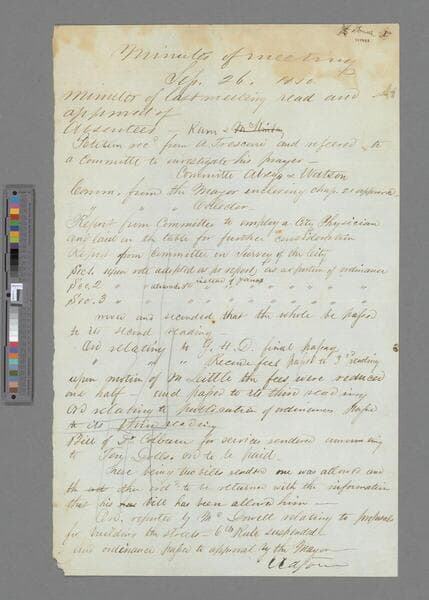 Minutes of meeting
Sep. 26. 1850
Minutes of last meeting read and
approved of
Absentees Kurn &
Petition recd from A. Trescony and refered to
a committee to investigate his prayer —
Committee & Watson
Comm. from the Mayor inclosing chap. 21 approved
" " " Collector
Report from Committee to employ a City Physician
and laid on the table for further consideration
Report of Committee on survey of the City
Sec. 1. upon vote adopted as pr report as a portion of ordinance
Sec. 2 " " instead of " " " " "
Sec. 3 " " " " " " " "
move and seconded that the whole be passed
to its second reading —
Ord relating to final passage
" " " Recorders fees passed to 3d reading
upon motion of Mr Little the fees were reduced
one half — and passed to its third reading
Ord relating to publication of ordinances passed
to its third reading
Bill of Dr for services rendered amounting
to Ten Dolls ord to be paid.
there being two bills one was allowed and
the other ord to be returned with the information
that his Bill has been allowed him —
Ord. reported by Mc Dowell relating to proposals
for building the streets — 6th Rule suspended
and ordinance passed to approval by the Mayor